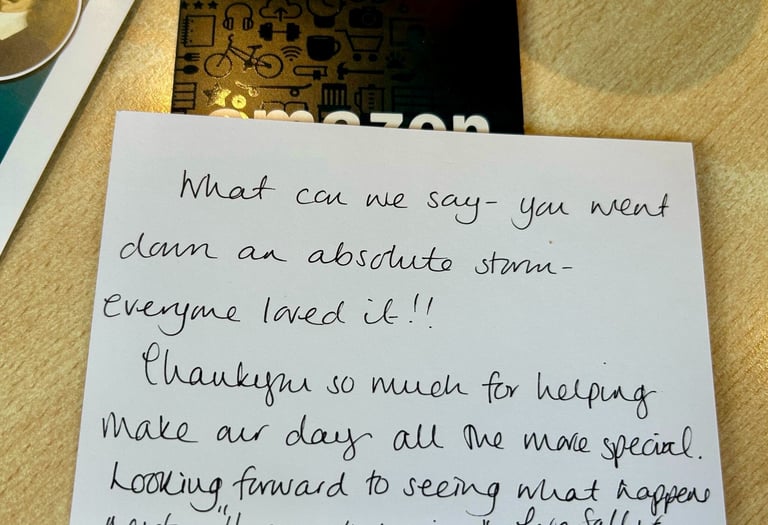 amazon
What can we say- you went
down an absolute storm-
everyone loved it!!
Thankyou so much for helping
make our day all the more special.
Looking forward to seeing what happens